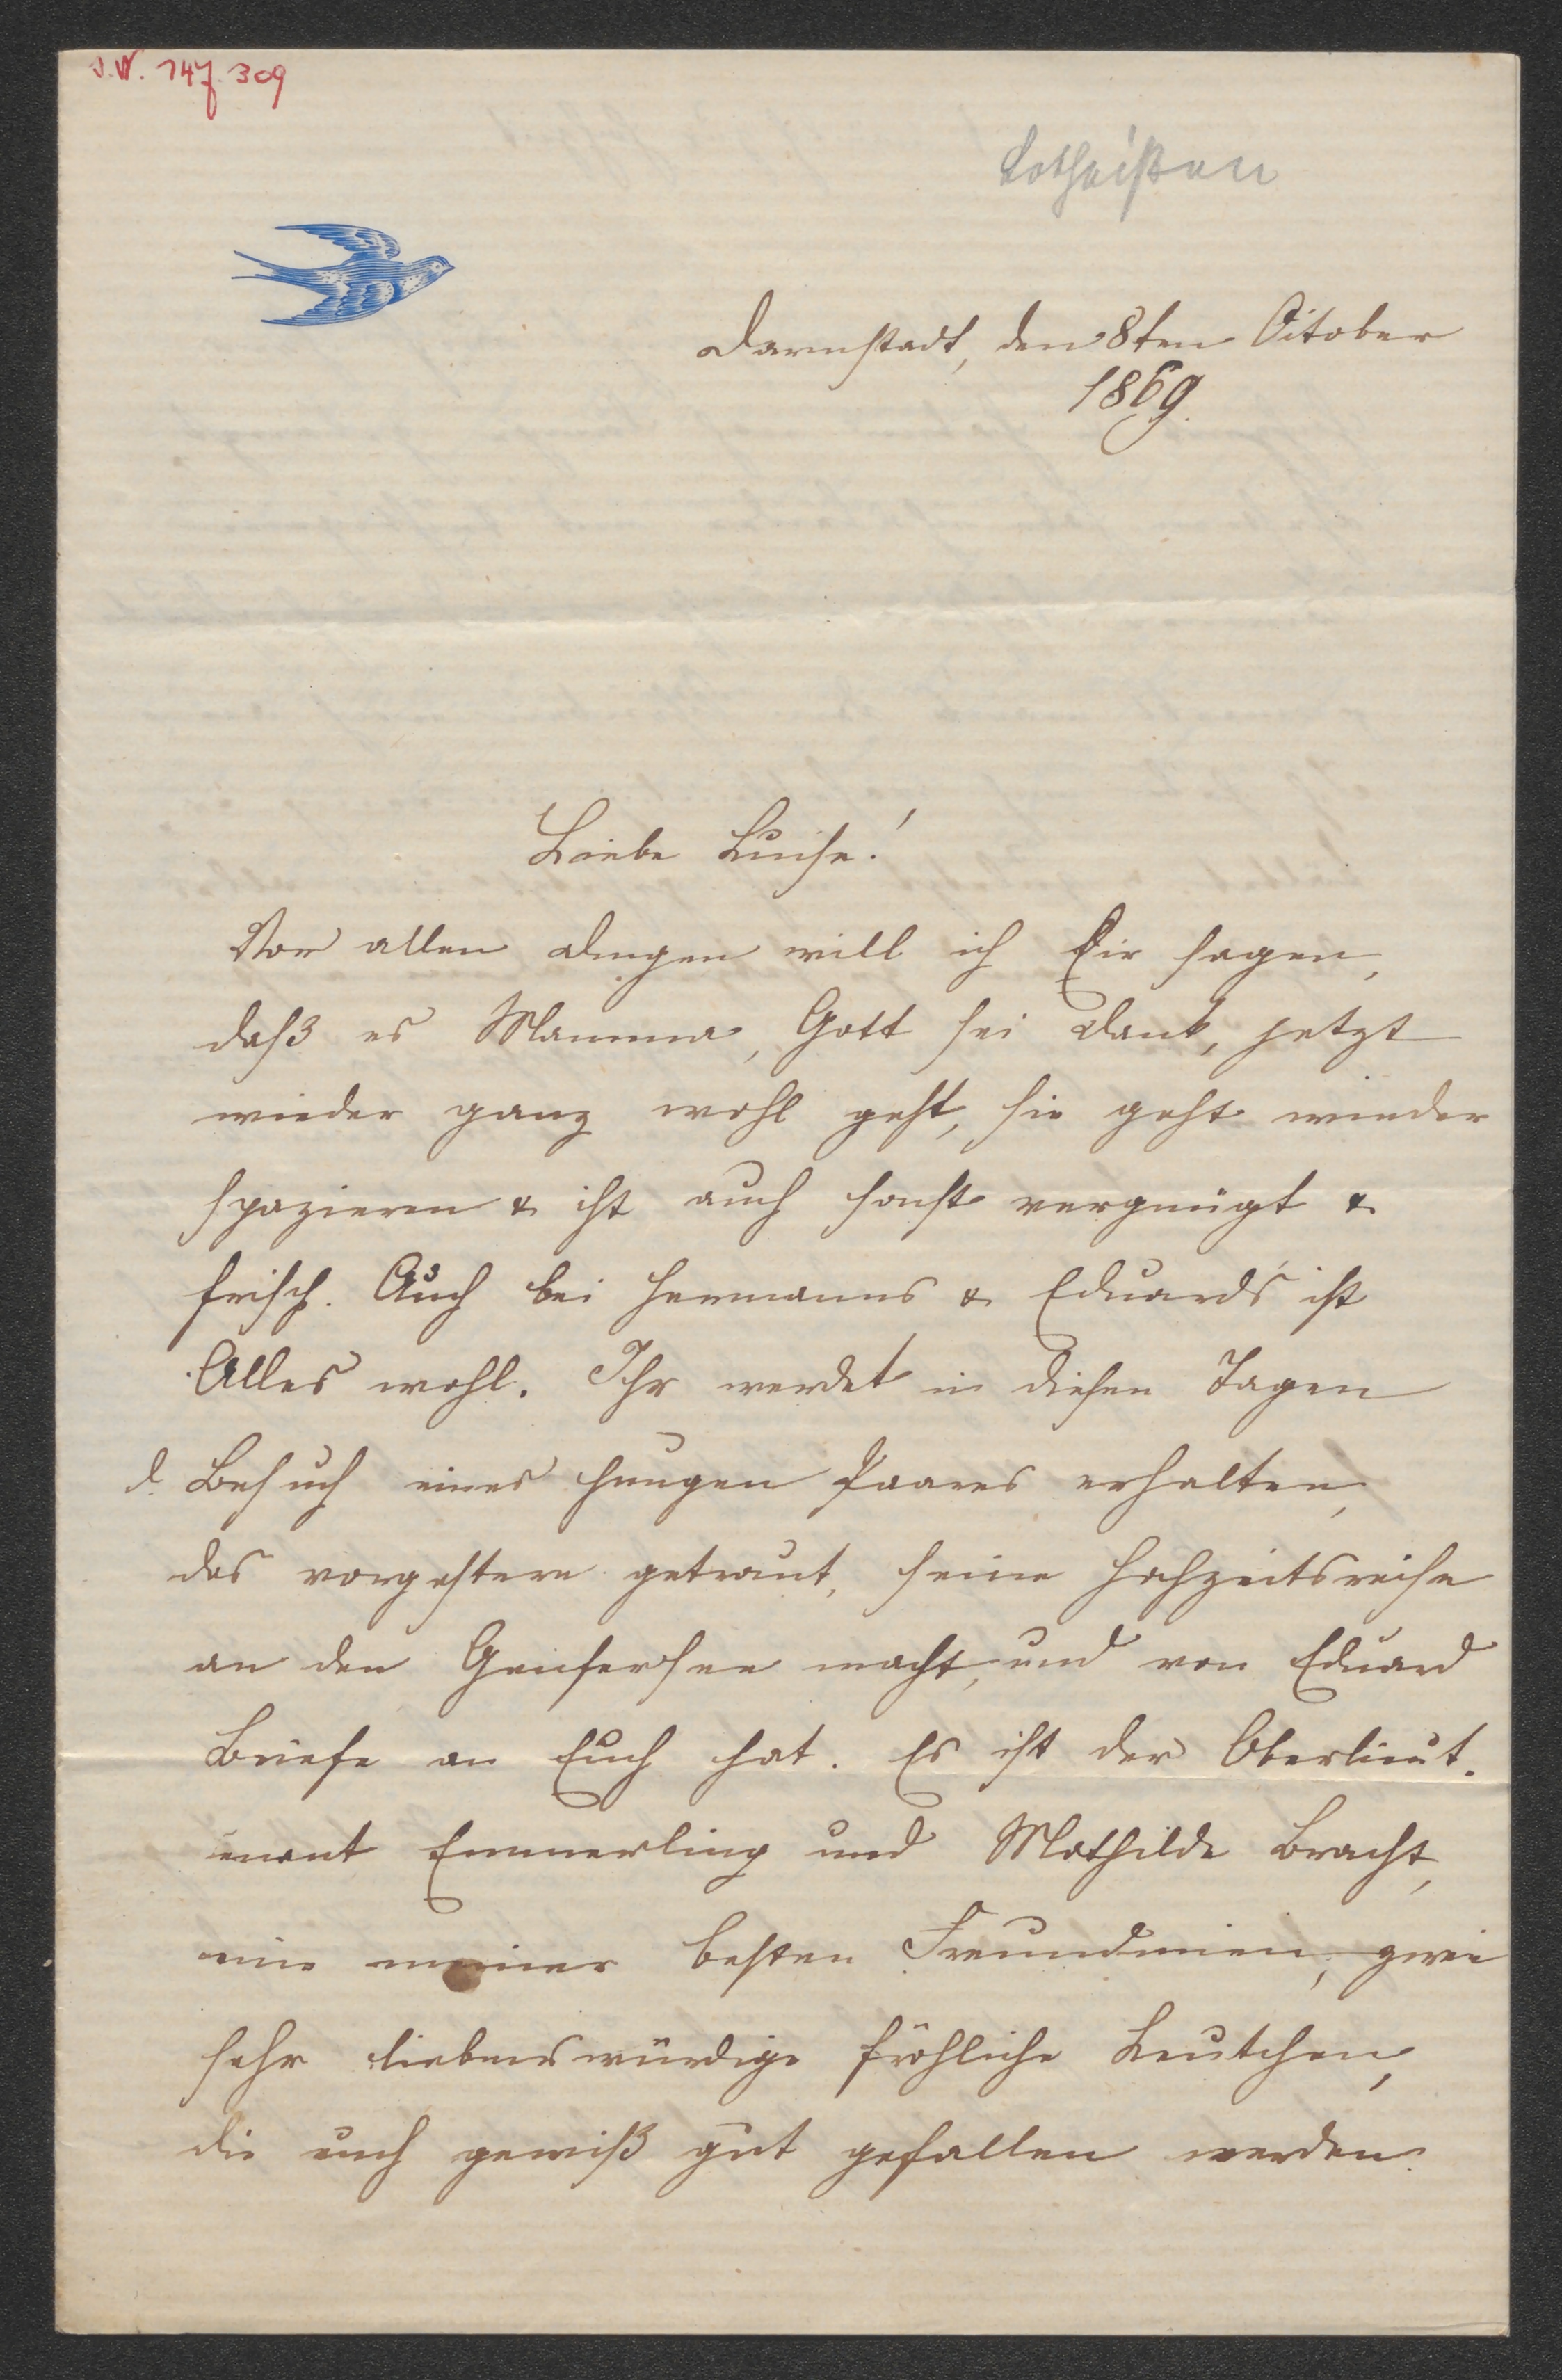 J.N. 147.309
Lotheißen
Darmstadt, den 8ten October
1869.
Liebe Luise!
Vor allen Dingen will ich Dir sagen,
daß es Mamma, Gott sei Dank, jetzt
wieder ganz wohl geht, sie geht wieder
spazieren & ist auch sonst vergnügt &
frisch. Auch bei Hermanns & Eduards ist
Alles wohl. Ihr werdet in diesen Tagen
d. Besuch eines jungen Paares erhalten,
das vorgestern getraut, seine Hochzeitsreise
an den Genfersee macht, und von Eduard
Briefe an Euch hat. Es ist der Oberlieut-
enant Emmerling und Mathilde Bracht,
eine meiner besten Freundinnen, zwei
sehr liebenswürdige fröhliche Leutchen,
die euch gewiß gut gefallen werden.